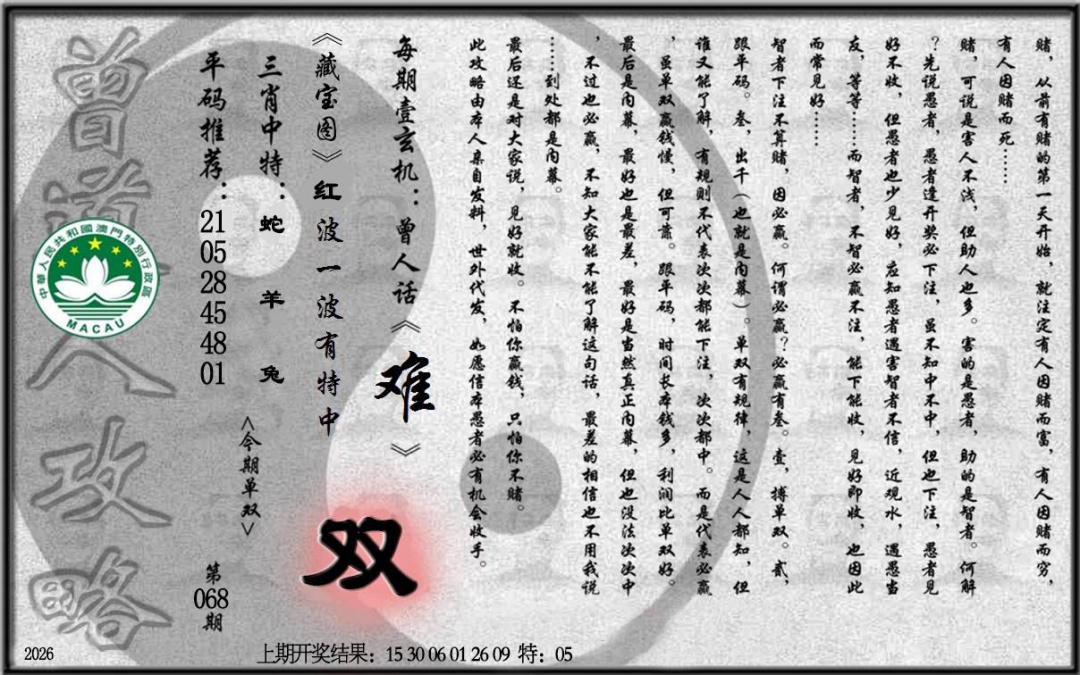 赌，从前有赌的第一天开始，就注定有人因赌而富，有人因赌而穷，
有人因赌而死……
赌，可说是害人不浅，但助人也多。害的是愚者，助的是智者。何解
？先说愚者，愚者逢开奖必下注，虽不知中不中，但也下注，愚者见
好不收，但愚者也少见好，应知愚者遇害智者不信，近观水，遇愚当
友，等等……而智者，不智必赢不注，能下能收，见好即收，也因此
而常见好……
智者下注不算赌，因必赢。何谓必赢？必赢有叁。壹，搏单双。贰，
跟平码。叁，出千（也就是内幕）。单双有规律，这是人人都知，但
谁又能了解，有规则不代表次次都能下注，次次都中。而是代表必赢
，虽单双赢钱慢，但可靠。跟平码，时间长本钱多，利润比单双好。
最后是内幕，最好也是最差，最好是当然真正内幕，但也没法次次中
，不过也必赢，不知大家能不能了解这句话，最差的相信也不用我说
……到处都是内幕。
最后还是对大家说，见好就收。不怕你赢钱，只怕你不赌。
此攻略由本人亲自发料，世外代发，如愿信本愚者必有机会收手。
每期壹玄机：曾人话《难》
《藏宝图》红波一波有特中
双
三肖中特：蛇 羊 兔
<今期单双>
平码推荐：21 05 28 45 48 01
第068期
曾道人攻略
中華人民共和國澳門特別行政區
MACAU
2026
上期开奖结果：15 30 06 01 26 09 特：05